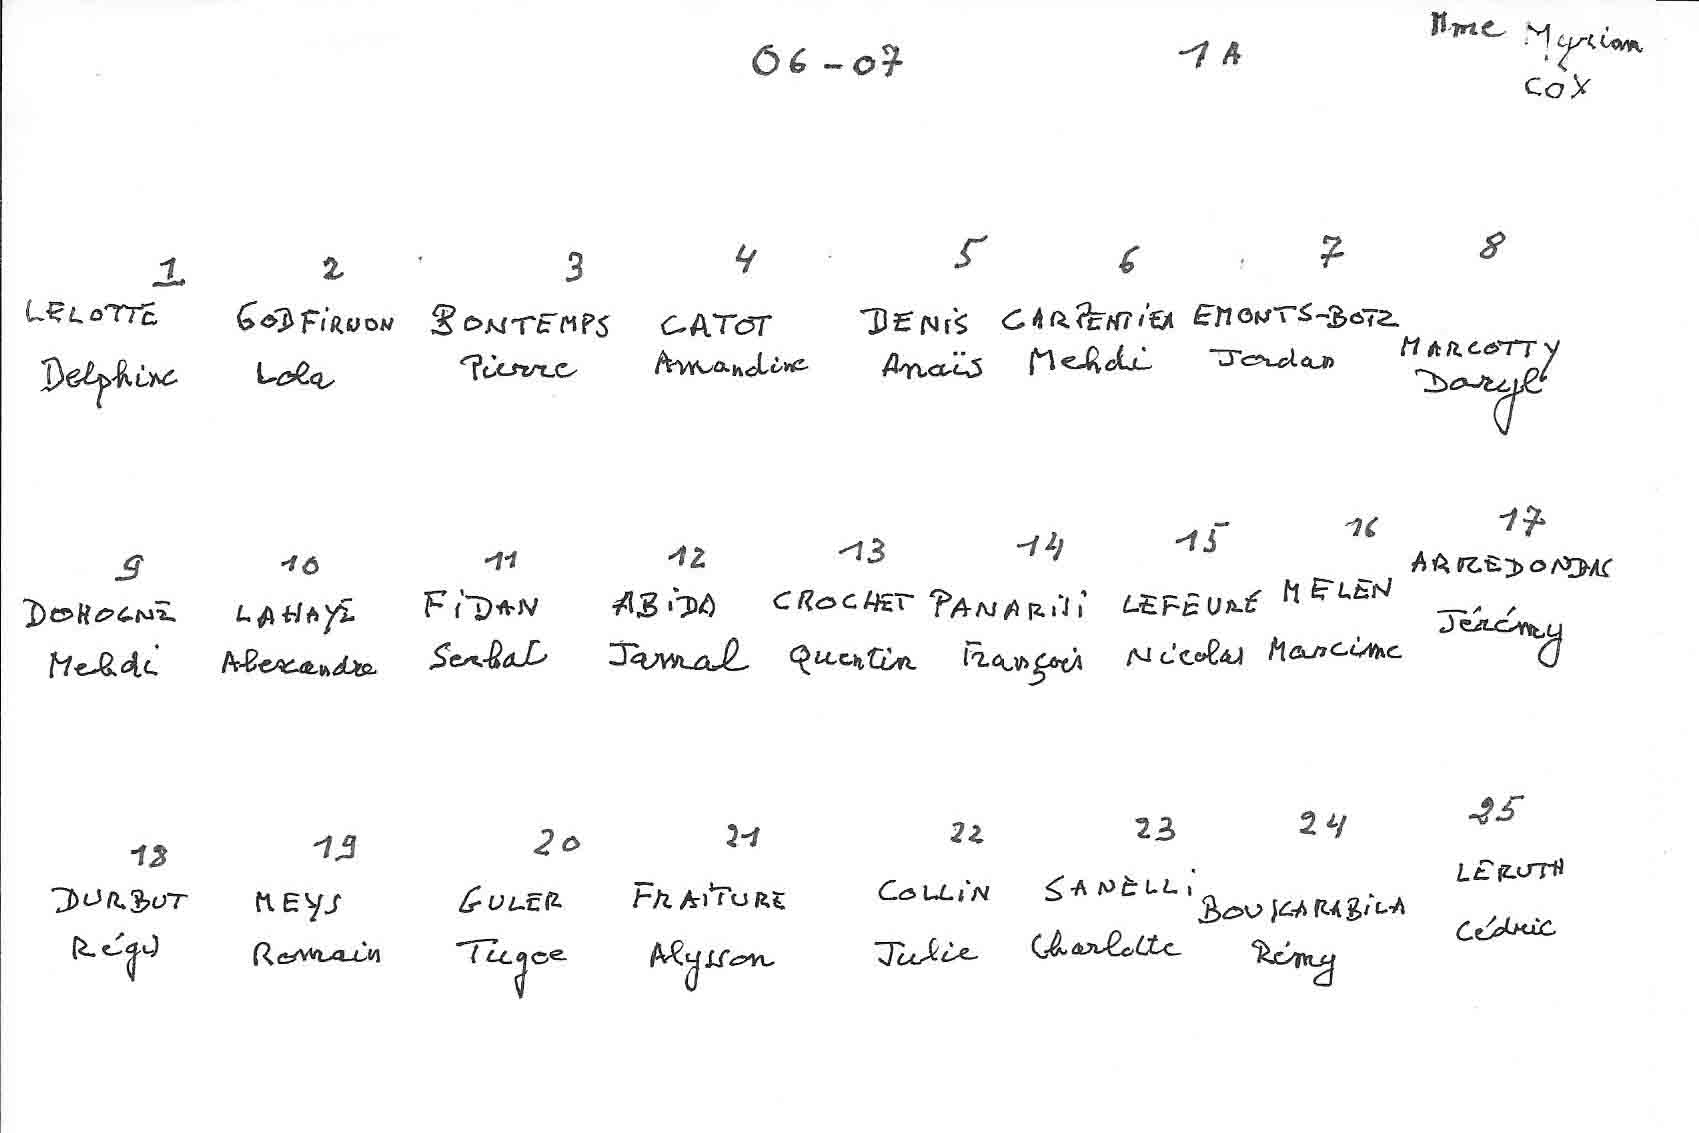 06-07 1A Mme Myriam
COX
1 2 3 4 5 6 7 8
LELOTTE GODFIRNON BONTEMPS CATOT DENIS CARPENTIER EMONTS-BOTZ MARCOTTY
Delphine Lola Pierre Amandine Anaïs Mehdi Jordan Daryl
9 10 11 12 13 14 15 16 17
DOHOGNE LAHAYE FIDAN ABIDA CROCHET PANARISI LEFEVRE MELEN ARREDONDAS
Mehdi Alexandre Serhat Jamal Quentin François Nicolas Maxime Jérémy
18 19 20 21 22 23 24 25
DURBUT MEYS GULER FRAITURE COLLIN SANELLI BOUSKARABILA LERUTH
Régis Romain Tugce Alysson Julie Charlotte Rémy Cédric